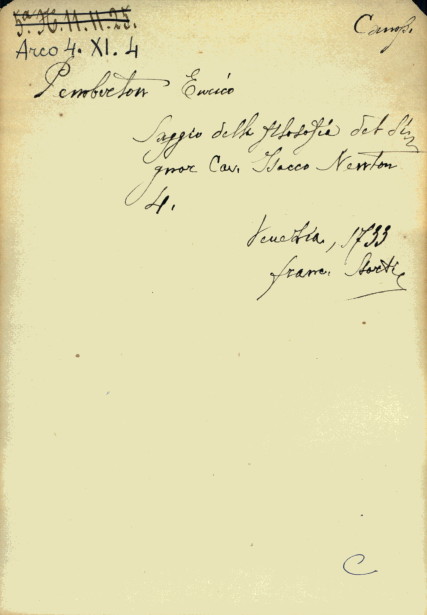 Arco 4. XI. 4
Camp.
Pemberton Enrico
Saggio della filosofia del Si
gnor Cav. Isacco Newton
4.
Venezia, 1733
franc. Storti
C